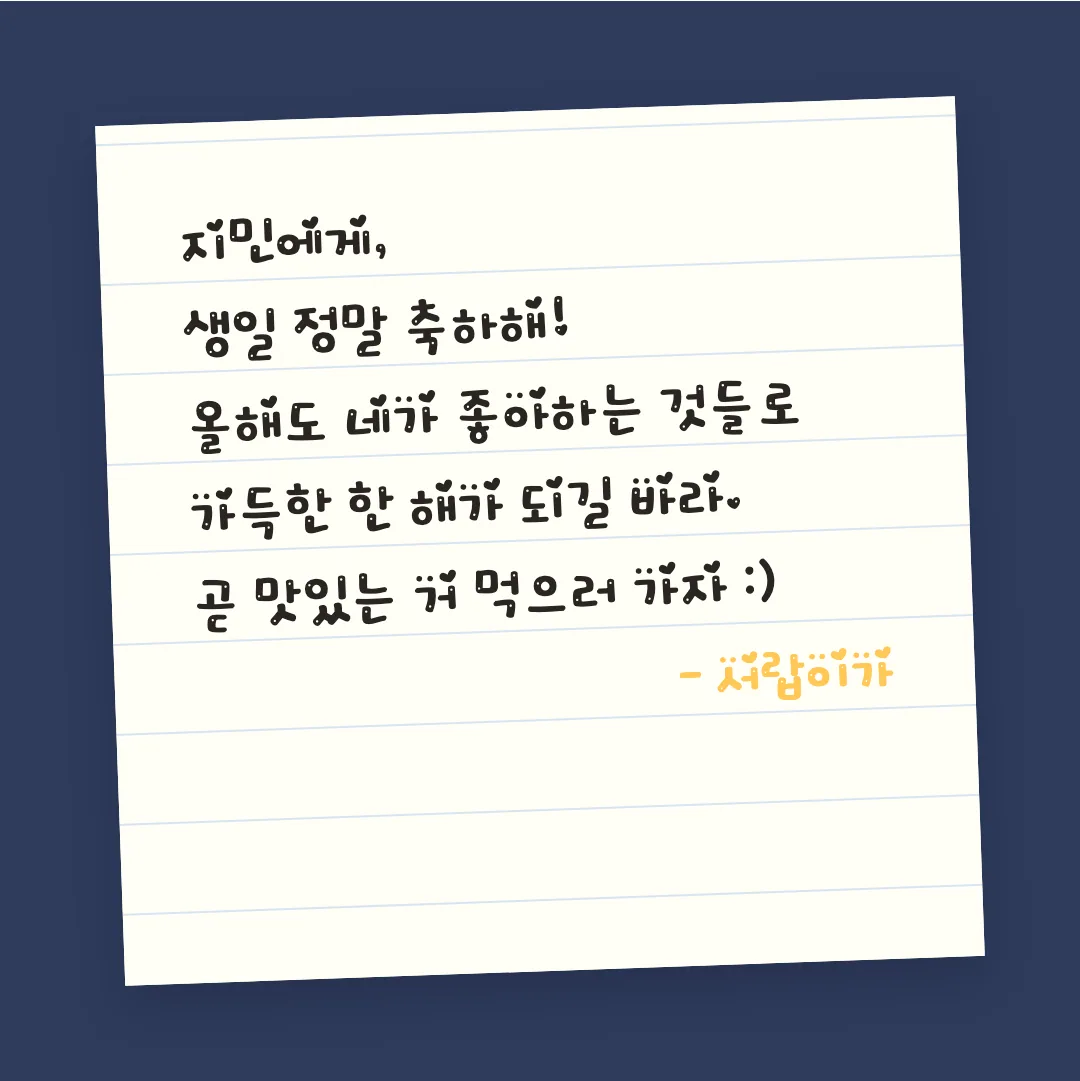 지민에게,
생일 정말 축하해!
올해도 네가 좋아하는 것들로
가득한 한 해가 되길 바라.
곧 맛있는 거 먹으러 가자 :)
- 서랍이가